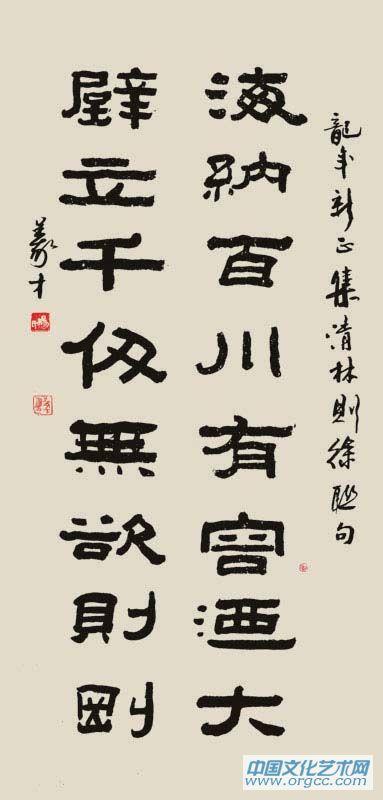 龍年新正集清林則徐聯句
海納百川有容迺大
壁立千仞無欲則剛
中国文化艺术网
www.orgcc.com